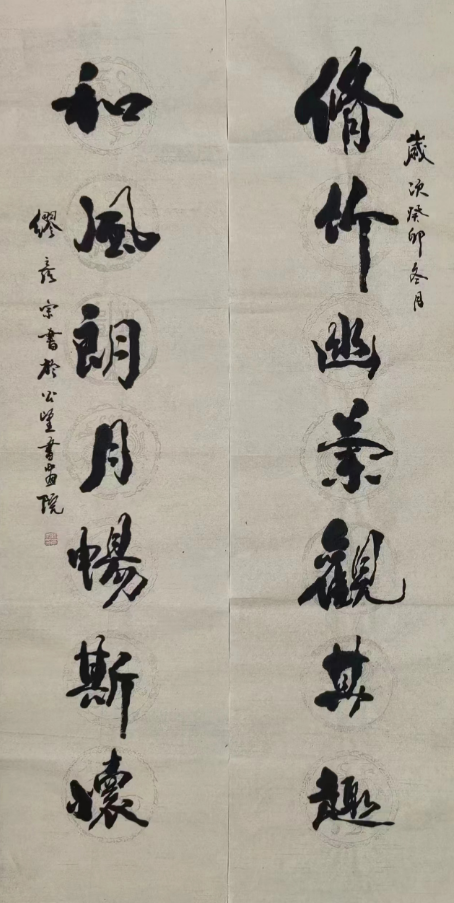 歲次癸卯冬月
脩竹幽蘭觀其趣
和風朗月暢斯懷
繆彥宗書於公望書畫院